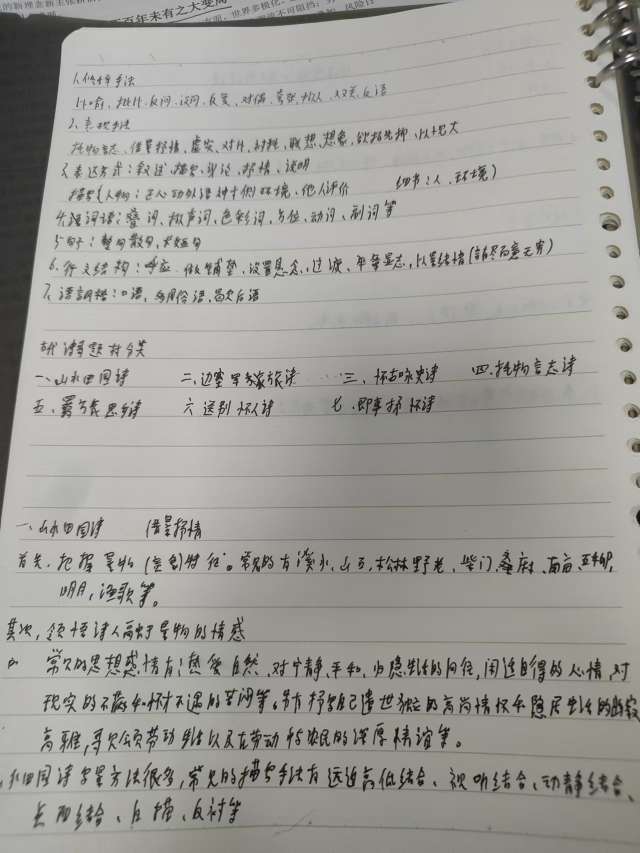 百年未有之大变局
世界多极化
不可阻挡
1.修辞手法
比喻、排比、反问、设问、反复、对偶、夸张、拟人、双关、反语
2.表现手法
托物言志、借景抒情、虚实、对比、衬托、联想、想象、欲扬先抑、以小见大
3.表达方式:叙述、描写、议论、抒情、说明
描写(人物:正心动外语神 侧环境、他人评价 细节:人、环境)
4.炼词语:叠词、拟声词、色彩词、方位、动词、副词等
5.句子:整句散句、长短句
6.行文结构:呼应、做铺垫、设置悬念、过渡、卒章显志,以景结情(言尽而意无穷)
7.语言风格:口语、俗语
古代诗歌题材分类
一、山水田园诗 二、边塞军旅诗 三、怀古咏史诗 四.托物言志诗
五、羁旅思乡诗 六送别怀人诗 七、即事抒怀诗
一、山水田园诗 借景抒情
首先,把握景物(意象)特征。常见的有溪水,山石,松林野老,柴门,桑麻,南亩,五柳,
明月,渔歌等。
其次,领悟诗人寓于景物的情感
常见的思想感情有:热爱自然、对宁静、平和、归隐生活的向往,闲适自得的心情,对
现实的不满和怀才不遇的苦闷等。另有抒写自己遗世独立的高尚情怀和隐居生活的
高雅,歌颂劳动生活以及在劳动中与农民的深厚情谊等。
水田园诗写景方法很多,常见的描写手法有远近高低结合、视听结合、动静结合、
结合、白描、反衬等